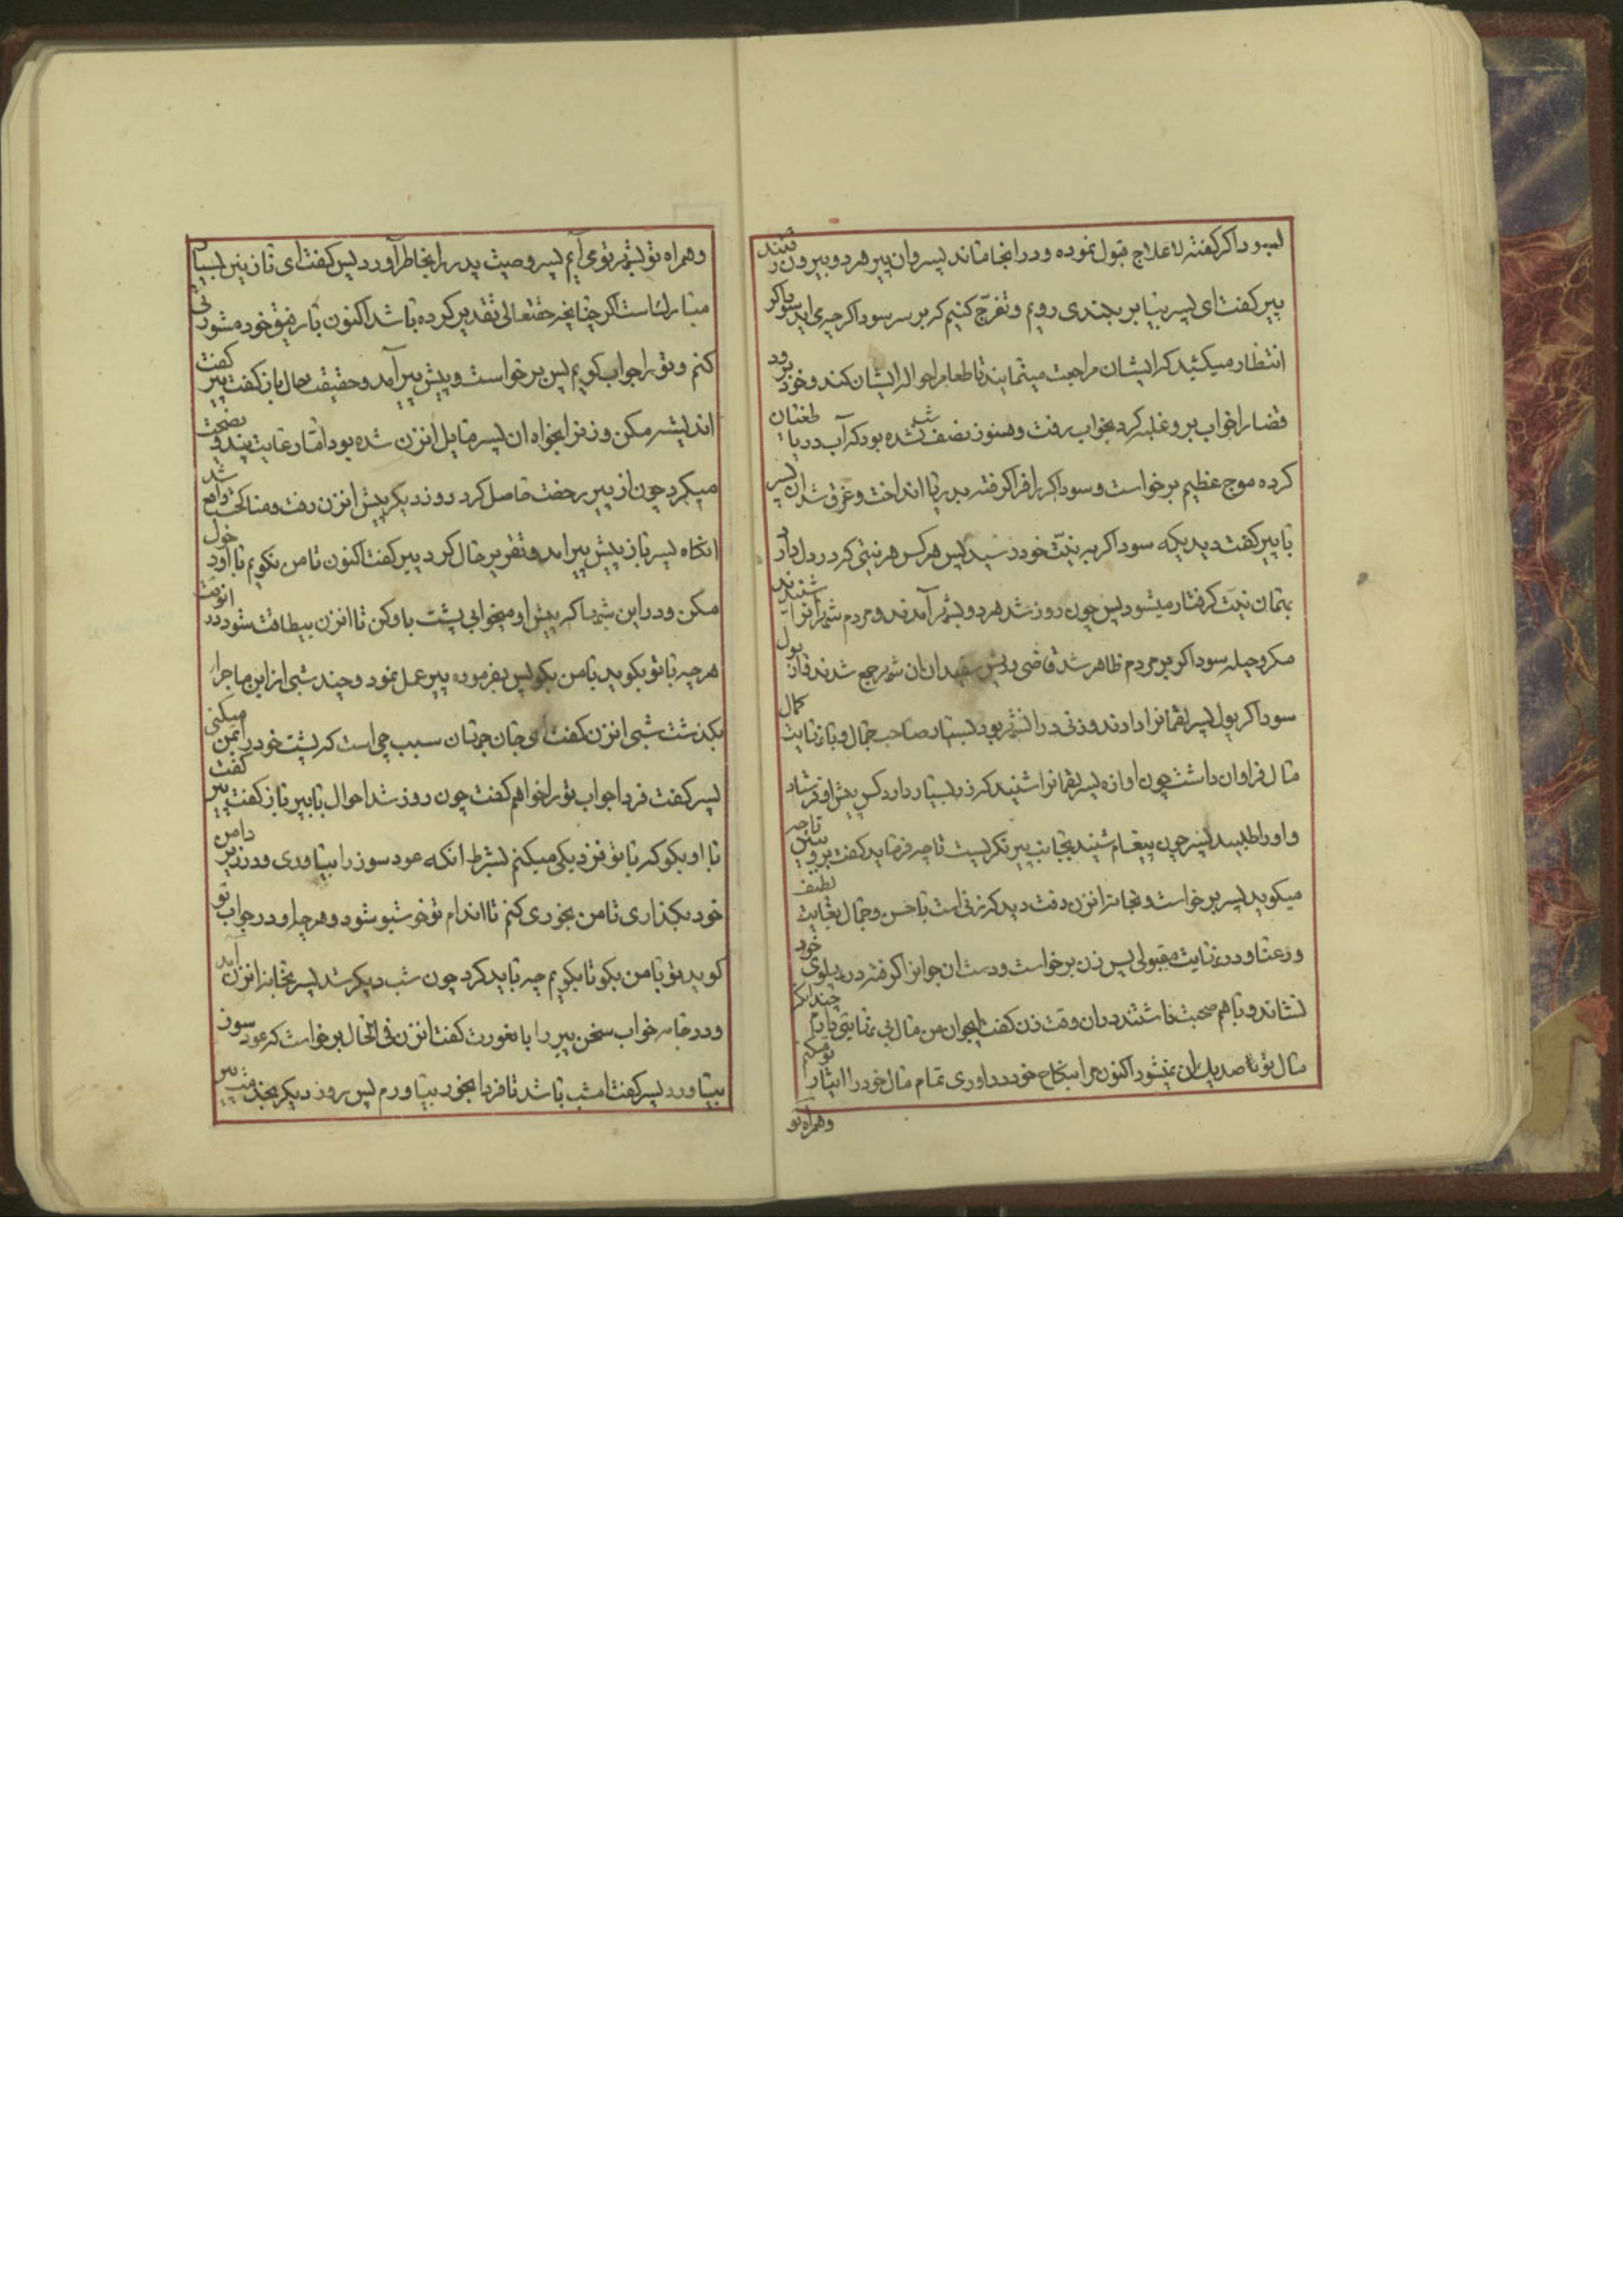 سوداگر گفته لاعلاج قبول نموده و در انجا ماند پسر و ان پیر هر دو بیرون رفتند
پیر گفت ای پسر بیا بر بلندی رویم و تفرّج کنیم که بر سر سوداگر چه می اید سوداگر
انتظار میکشید که ایشان مراجعت مینمایند تا طعام را حواله ایشان کند و خود برود
قضا را خواب بر و غلبه کرد بخواب رفت و هنوز نصف شب نشده بود که آب دریا طغیان
کرده موج عظیم برخواست و سوداگر را فرا گرفته بدریا انداخت و غرق شد ان پسر
با پیر گفت دیدیکه سوداگر به نیّت خود رسید پس هر کس هر نیتی که در دل دارد
بهمان نیّت گرفتار میشود پس چون روز شد هر دو بشهر آمدند و مردم شهر انرا شنیدند
مکر و حیله سوداگر بر مردم ظاهر شد قاضی و ریش سفیدان ان شهر جمع شدند و ان پول
سوداگر بول پسر لقمانرا دادند و زنی در انشهر بود بسیار صاحب جمال و با کمال
مال فراوان داشت چون اوازه پسر لقمانرا شنید که زر بسیار دارد کس پیش او فرستاد
و او را طلبید پسر چون پیغام شنید بجانب پیر نگریست تا چه فرماید گفت برو ببین تا چه
میگوید پسر برخواست و بخانه انزن رفت دید که زنی است با حسن و جمال بغایت لطیف
و رعنا و در نهایت مقبولی پس زن برخواست و دست ان جوانرا گرفته در پهلوی خود
نشاند و با هم صحبت داشتند در ان وقت زن گفت ایجوان من مال بی نهایتی دارم چندانکه
مال تو تا صد یک ان نمیشود اکنون مرا بنکاح خود در اوری تمام مال خود را ایثار تو میکنم
و همراه تو
و همراه تو بشهر تو می آیم پسر وصیت پدر را بخاطر آورد پس گفت ای نازنین بسیار
مبارکست اگر چنانچه حقتعالی تقدیر کرده باشد اکنون با رفیق خود مشورتی
کنم و تو را جواب گویم پس برخواست و پیش پیر آمد و حقیقت حال باز گفت پیر گفت
اندیشه مکن و زنرا بخواه ان پسر مایل انزن شده بود امّا رعایت پند و نصیحت
میکرد چون از پیر رخصت حاصل کرد روز دیگر پیش انزن رفت و مناکحت واقع شد
انگاه پسر باز پیش پیر امد و تقریر حال کرد پیر گفت اکنون تا من نگویم با او دخول
مکن و در این شبها که پیش او میخوابی پشت با و کن تا انزن بیطاقت شود در انوقت
هر چه با تو بگوید با من بگو پس بفرموده پیر عمل نمود و چند شبی از این ماجرا
بگذشت شبی انزن گفت ای جان جهان سبب چی است که پشت خود را بمن میکنی
پسر گفت فردا جواب تو را خواهم گفت چون روز شد احوال با پیر باز گفت پیر گفت
با او بگو که با تو نزدیکی میکنم بشرط انکه عود سوز را بیاوری و در زیر دامن
خود بگذاری تا من بخوری کنم تا اندام تو خوشبو شود و هر چه او در جواب تو
گوید تو با من بگو تا بگویم چه باید کرد چون شب دیگر شد پسر بخانه انزن آمد
و در جامه خواب سخن پیر را با عورت گفت انزن فی الحال برخواست که عود سوز
بیاورد پسر گفت امشب باشد تا فردا بخور بیاورم پس روز دیگر بخدمت پیر